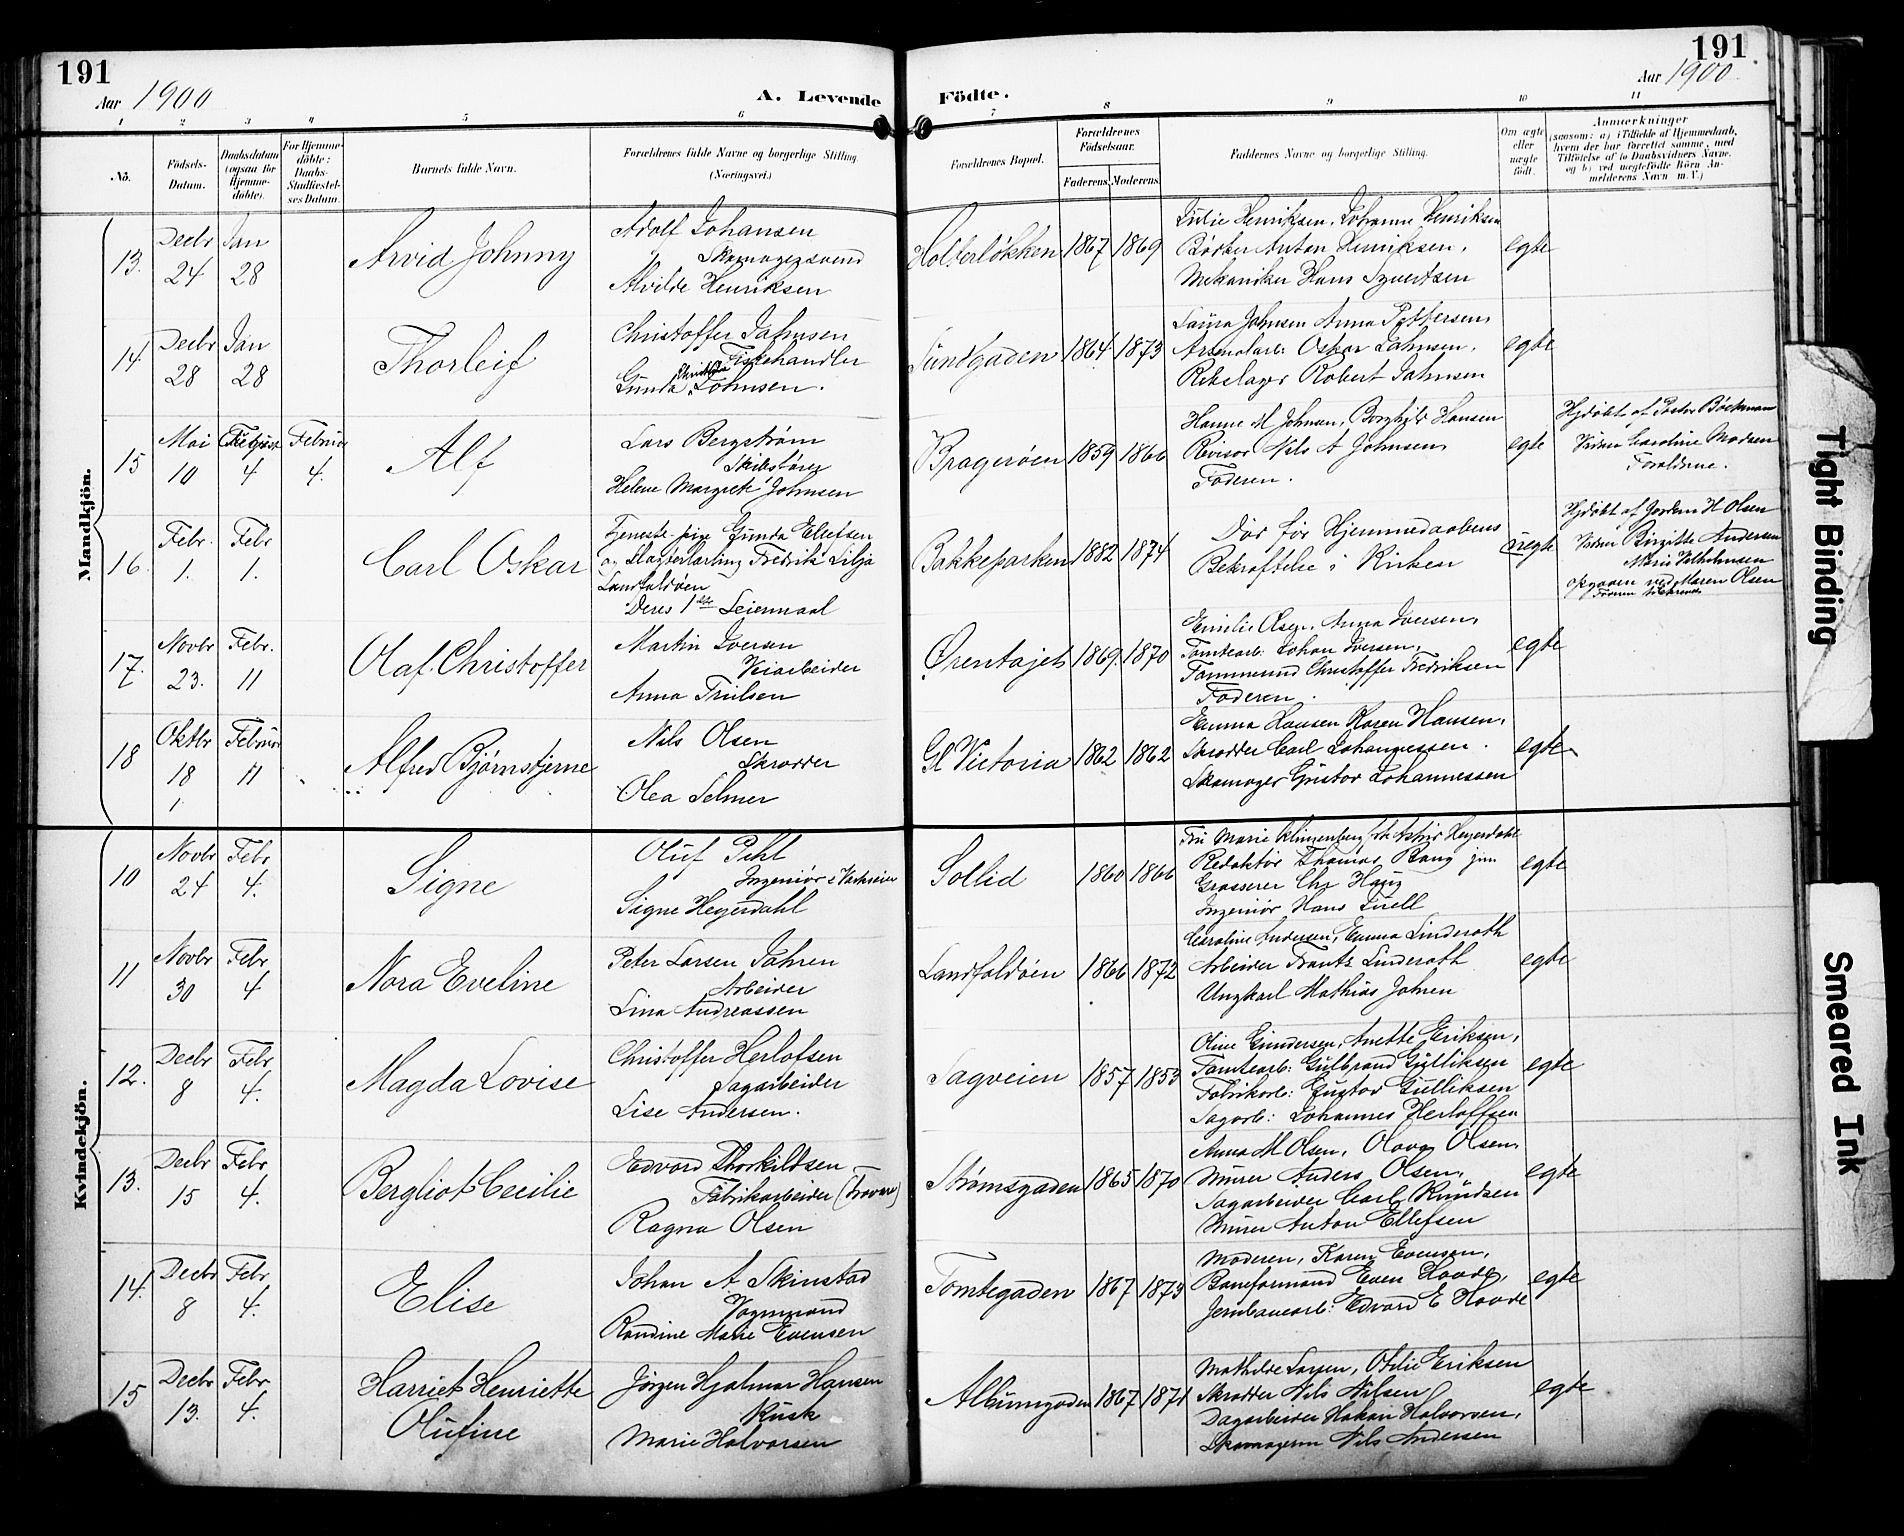 191
191
Aar 1900
Aar 1900.
A. Levende Födte.
1 2 3 4 5 6 7 8 9 10 11
No.
Födsels-Datum.
Daabsdatum (ogsaa for Hjemme-döbte).
For Hjemme-döbte: Daabs-Stadfæstel-ses Datum.
Barnets fulde Navn.
Forældrenes fulde Navne og borgerlige Stilling.
(Næringsvei.)
Forældrenes Bopæl.
Forældrenes Födselsaar.
Faderens. Moderens.
Faddernes Navne og borgerlige Stilling.
Om ægte eller uægte födt.
Anmærkninger
(saasom: a) i Tilfælde af Hjemmedaab, hvem der har forrettet samme, med Tilföielse af to Daabsvidners Navne. og b) ved uægtefödte Börn An-melderens Navn m. V.)
Mandkjön.
13. Decbr 24 Jan 28 Arvid Johnny
Adolf Johansen
Skomagersvend
Alvilde Henriksen
Holterløkken 1867 1869
Julie Henriksen, Johanne Henriksen
Bødker Anton Henriksen,
Mekaniker Hans Syvertsen
egte
14. Decbr 28 Jan 28 Thorleif
Christoffer Jahnsen
Fiskehandler
Gunda Christine Johnsen.
Tundgaden 1864 1873
Laura Johnsen Anna Pettersen,
Arsenalarb: Oskar Jahnsen,
Rebslager Robert Jahnsen
egte
15 Mai 10 Februar 4 Februar 4. Alf
Lars Bergstrøm
Skibsfører
Helene Margrete Johnsen
Bragerøen 1859 1866
Hanne M Johnsen, Borghild Hansen
Revisor Nils A Johnsen,
Faderen.
egte
Hjdøbt af Pastor Bøckman
Vidner Caroline Madsen
Forældrene.
16. Febr. 1. Febr 1. Carl Oskar
Tjeneste pige Gunda Ellefsen
og Slagterlærling Fredrik Lilja
Landfaldøen
Deres 1ste Leiermaal
Bakkeparken 1882 1874
Dør før Hjemmedaabens
Bekræftelse i Kirken
uegte
Hjdøbt af Jordem H Olsen
Vidner Birgitte Andersen
Marie Vilhelmsen
opgaven ved Maren Olsen
17. Novbr 23. Febr. 11 Olaf Christoffer
Martin Iversen
Veiarbeider
Anna Trulsen
Ørentajet 1869. 1870
Emilie Olsen, Anna Iversen,
Tomtearb: Johan Iversen,
Tømmermd Christoffer Fredriksen
Faderen.
egte
18 Oktbr 18 Februar 11 Alfred Bjørnstjerne
Nils Olsen
Skrædder
Olea Selmer
Gl Victoria 1862 1862
Emma Hansen Karen Hansen,
Skrædder Carl Johannessen.
Skomager Gustav Johannessen
egte
Kvindekjön.
10 Novbr 24 Febr 4. Signe
Oluf Pihl
Ingeniør
Signe Heyerdahl
Sollid 1860 1866
Fru Marie Klingenberg, frk Astrid Heyerdahl
Redaktør Thomas Bang jun.
Grosserer Chr Haug
Ingeniør Hans Luell
egte
11 Novbr 30 Febr 4 Nora Eveline
Peter Larsen Jahren
Arbeider
Lina Andreassen
Landfaldøen 1866 1872
Caroline Andersen, Emma Linderoth
Arbeider Frants Linderoth
Ungkarl Mathias Jahren
egte
12. Decbr 8 Febr 4. Magda Lovise
Christoffer Herlofsen
Sagarbeider
Lise Andersen.
Sagveien 1857 1853
Oline Gundersen, Anette Eriksen,
Tomtearb: Gulbrand Gulliksen
Fabrikarb: Gustav Gulliksen
Sagarb: Johannes Herloffsen
egte
13. Decbr 15 Febr 4. Bergliot Cecilie
Edvard Thorkildsen
Fabrikarbeider (Trævare)
Ragna Olsen
Strømsgaden 1865 1870
Anna M Olsen, Olava Olsen,
Murer Anders Olsen,
Sagarbeider Carl Knudsen
Murer Anton Ellefsen
egte
14. Decbr 8 Febr 4. Elise
Johan A Skinstad
Vognmand
Randine Marie Evensen
Tomtegaden 1867 1873
Moderen, Karen Evensen,
Baneformand Even Hovde,
Jernbanearb: Edvard E Hovde
egte
15 Decbr 13. Febr 4. Harriet Henriette Olufine
Jørgen Hjalmar Hansen
Kusk
Marie Halvorsen
Albumsgaden 1867 1871
Mathilde Larsen, Otilie Eriksen
Skrædder Nils Nilsen
Dagarbeider Hakon Halvorsen,
Skomagerm Nils Andersen
egte
Tight Binding
Smeared Ink